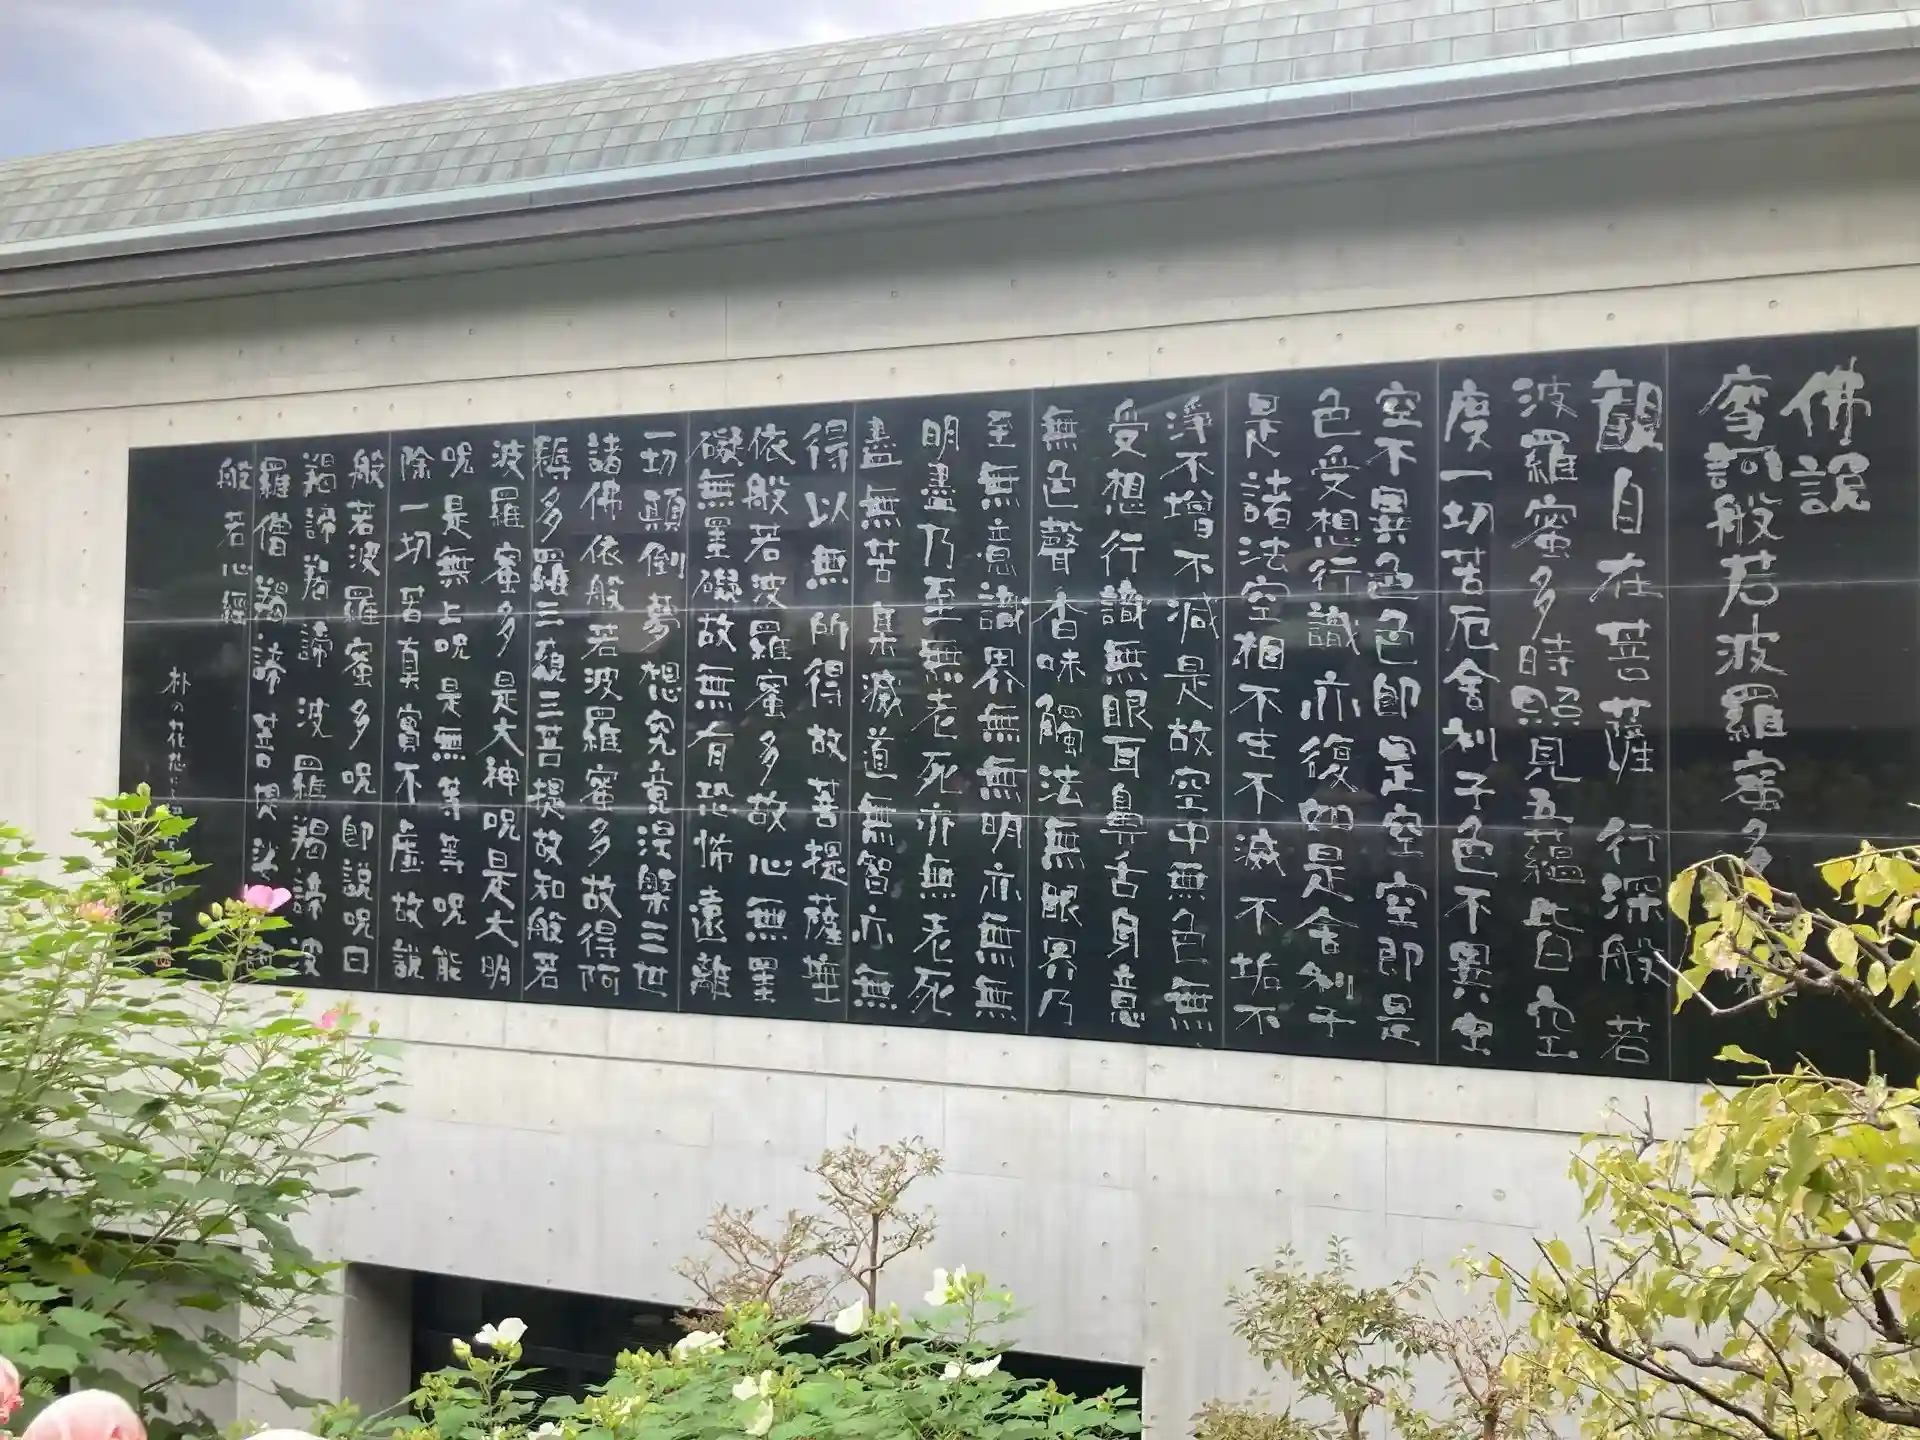 佛説
摩訶般若波羅蜜多
觀自在菩薩 行深般若
波羅蜜多時照見五蘊皆空
度一切苦厄舍利子色不異空
空不異色色即是空空即是
色受想行識亦復如是舍利子
是諸法空相不生不滅不垢不
淨不增不減是故空中無色無
受想行識無眼耳鼻舌身意
無色聲香味觸法無眼界乃
至無意識界無無明亦無無
明盡乃至無老死亦無老死
盡無苦集滅道無智亦無
得以無所得故菩提薩埵
依般若波羅蜜多故心無罣
礙無罣礙故無有恐怖遠離
一切顛倒夢想究竟涅槃三世
諸佛依般若波羅蜜多故得阿
耨多羅三藐三菩提故知般若
波羅蜜多是大神呪是大明
呪是無上呪是無等等呪能
除一切苦真實不虛故説
般若波羅蜜多呪即説呪曰
羯諦羯諦 波羅羯諦 波
羅僧羯諦 菩提娑訶
般若心經